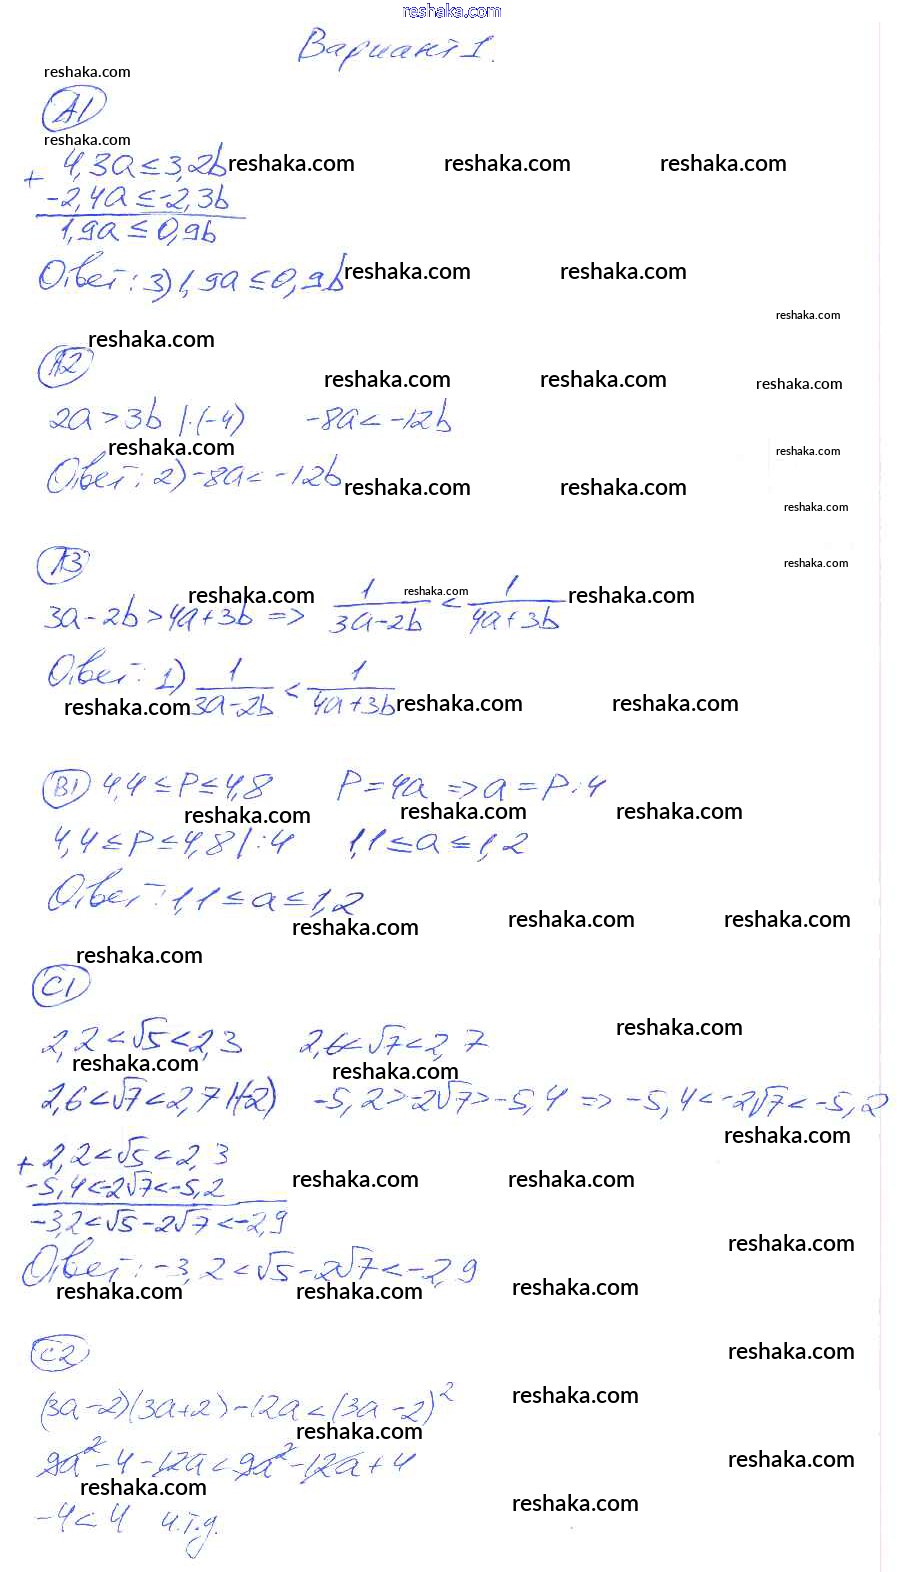 reshaka.com
Вариант 1.
reshaka.com
А1
reshaka.com
+ 4,3a ≤ 3,2b reshaka.com reshaka.com reshaka.com
-2,4a ≤ -2,3b
1,9a ≤ 0,9b
Ответ: 3) 1,9a ≤ 0,9b reshaka.com reshaka.com
reshaka.com
reshaka.com
А2 reshaka.com reshaka.com reshaka.com
2a > 3b |·(-4) -8a < -12b
reshaka.com reshaka.com
Ответ: 2) -8a < -12b reshaka.com reshaka.com
reshaka.com
А3 reshaka.com
reshaka.com reshaka.com reshaka.com
3a-2b > 4a+3b => 1/(3a-2b) < 1/(4a+3b)
Ответ: 1) 1/(3a-2b) < 1/(4a+3b)
reshaka.com reshaka.com reshaka.com
В1 4,4 ≤ P ≤ 4,8 P = 4a => a = P:4
reshaka.com reshaka.com reshaka.com
4,4 ≤ P ≤ 4,8 |:4 1,1 ≤ a ≤ 1,2
Ответ: 1,1 ≤ a ≤ 1,2
reshaka.com reshaka.com reshaka.com
reshaka.com
С1
2,2 < √5 < 2,3 2,6 < √7 < 2,7 reshaka.com
reshaka.com reshaka.com
2,6 < √7 < 2,7 |·(-2) -5,2 > -2√7 > -5,4 => -5,4 < -2√7 < -5,2
reshaka.com
+ 2,2 < √5 < 2,3
-5,4 < -2√7 < -5,2 reshaka.com reshaka.com
-3,2 < √5 - 2√7 < -2,9
reshaka.com
Ответ: -3,2 < √5 - 2√7 < -2,9
reshaka.com reshaka.com reshaka.com
С2 reshaka.com
(3a-2)(3a+2) - 12a < (3a-2)² reshaka.com
reshaka.com
9a² - 4 - 12a < 9a² - 12a + 4 reshaka.com
reshaka.com
-4 < 4 ч.т.д. reshaka.com